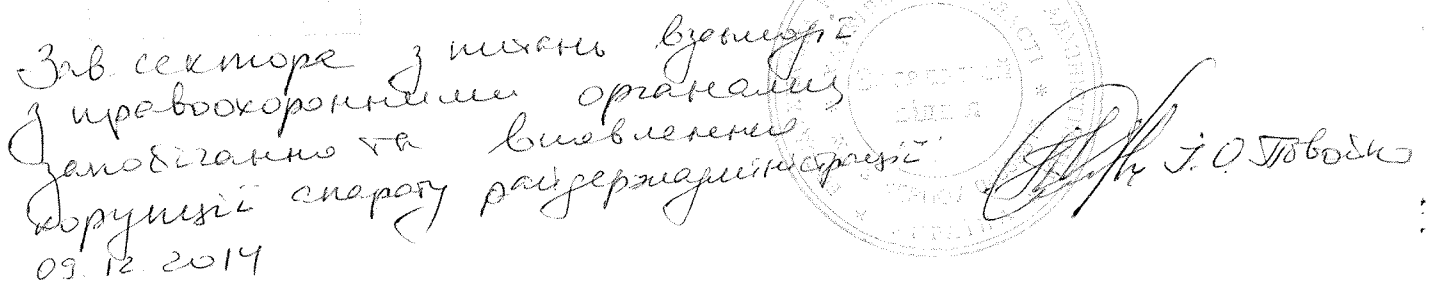 Зав. сектора з питань взаємодії
з правоохоронними органами,
запобігання та виявлення
корупції апарату райдержадміністрації
І.О. Повойко
09.12.2014